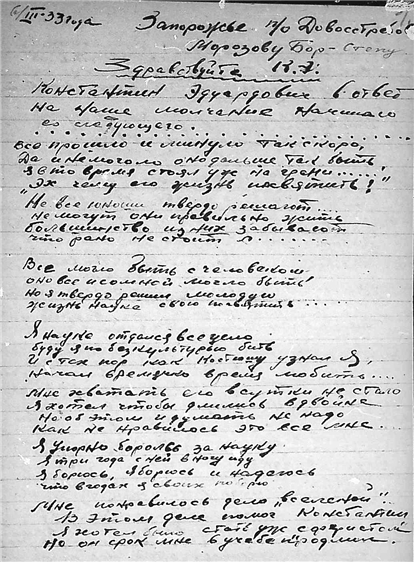 6/III-33 года Запорожье п/о Довосстрев
Морозову Бор-Степу
Здравствуйте К.Э.
Константин Эдуардович в ответ
На наше молчание начинаю
со следующего . .
Все прошло и минуло так скоро,
Да и немогло оно дальше так быть
Я в то время стоял уж на грани......!
"Эх чему его жизнь посвятить!"
Не все юноши твердо решают....
Не могут они правильно жить
Большинство из них забывает
что рано не стоит
Все могло быть с человеком
оно все и со мной могло быть!
Но я твердо решил молодую
жизнь науке свою посвятить ...
Я науке отдался всецело
буду я по безкультурью бить
И с тех пор как Костюшу узнал я,
Начал я время любить....
Мне хватать его в сутки не стало
Я хотел чтобы длились вдвойне
Но об этом и думать не надо
Как не нравилось это все мне...
Я упорно боролся за науку
Я три года с ней в ногу иду
Я борюсь, я борюсь и надеюсь
что в годах я своих поборю
Мне понравилось дело "вселенной"
В этом деле помог Константин
Я хотел было стать уж с артистом
Но он срок мне в учебе продлил.